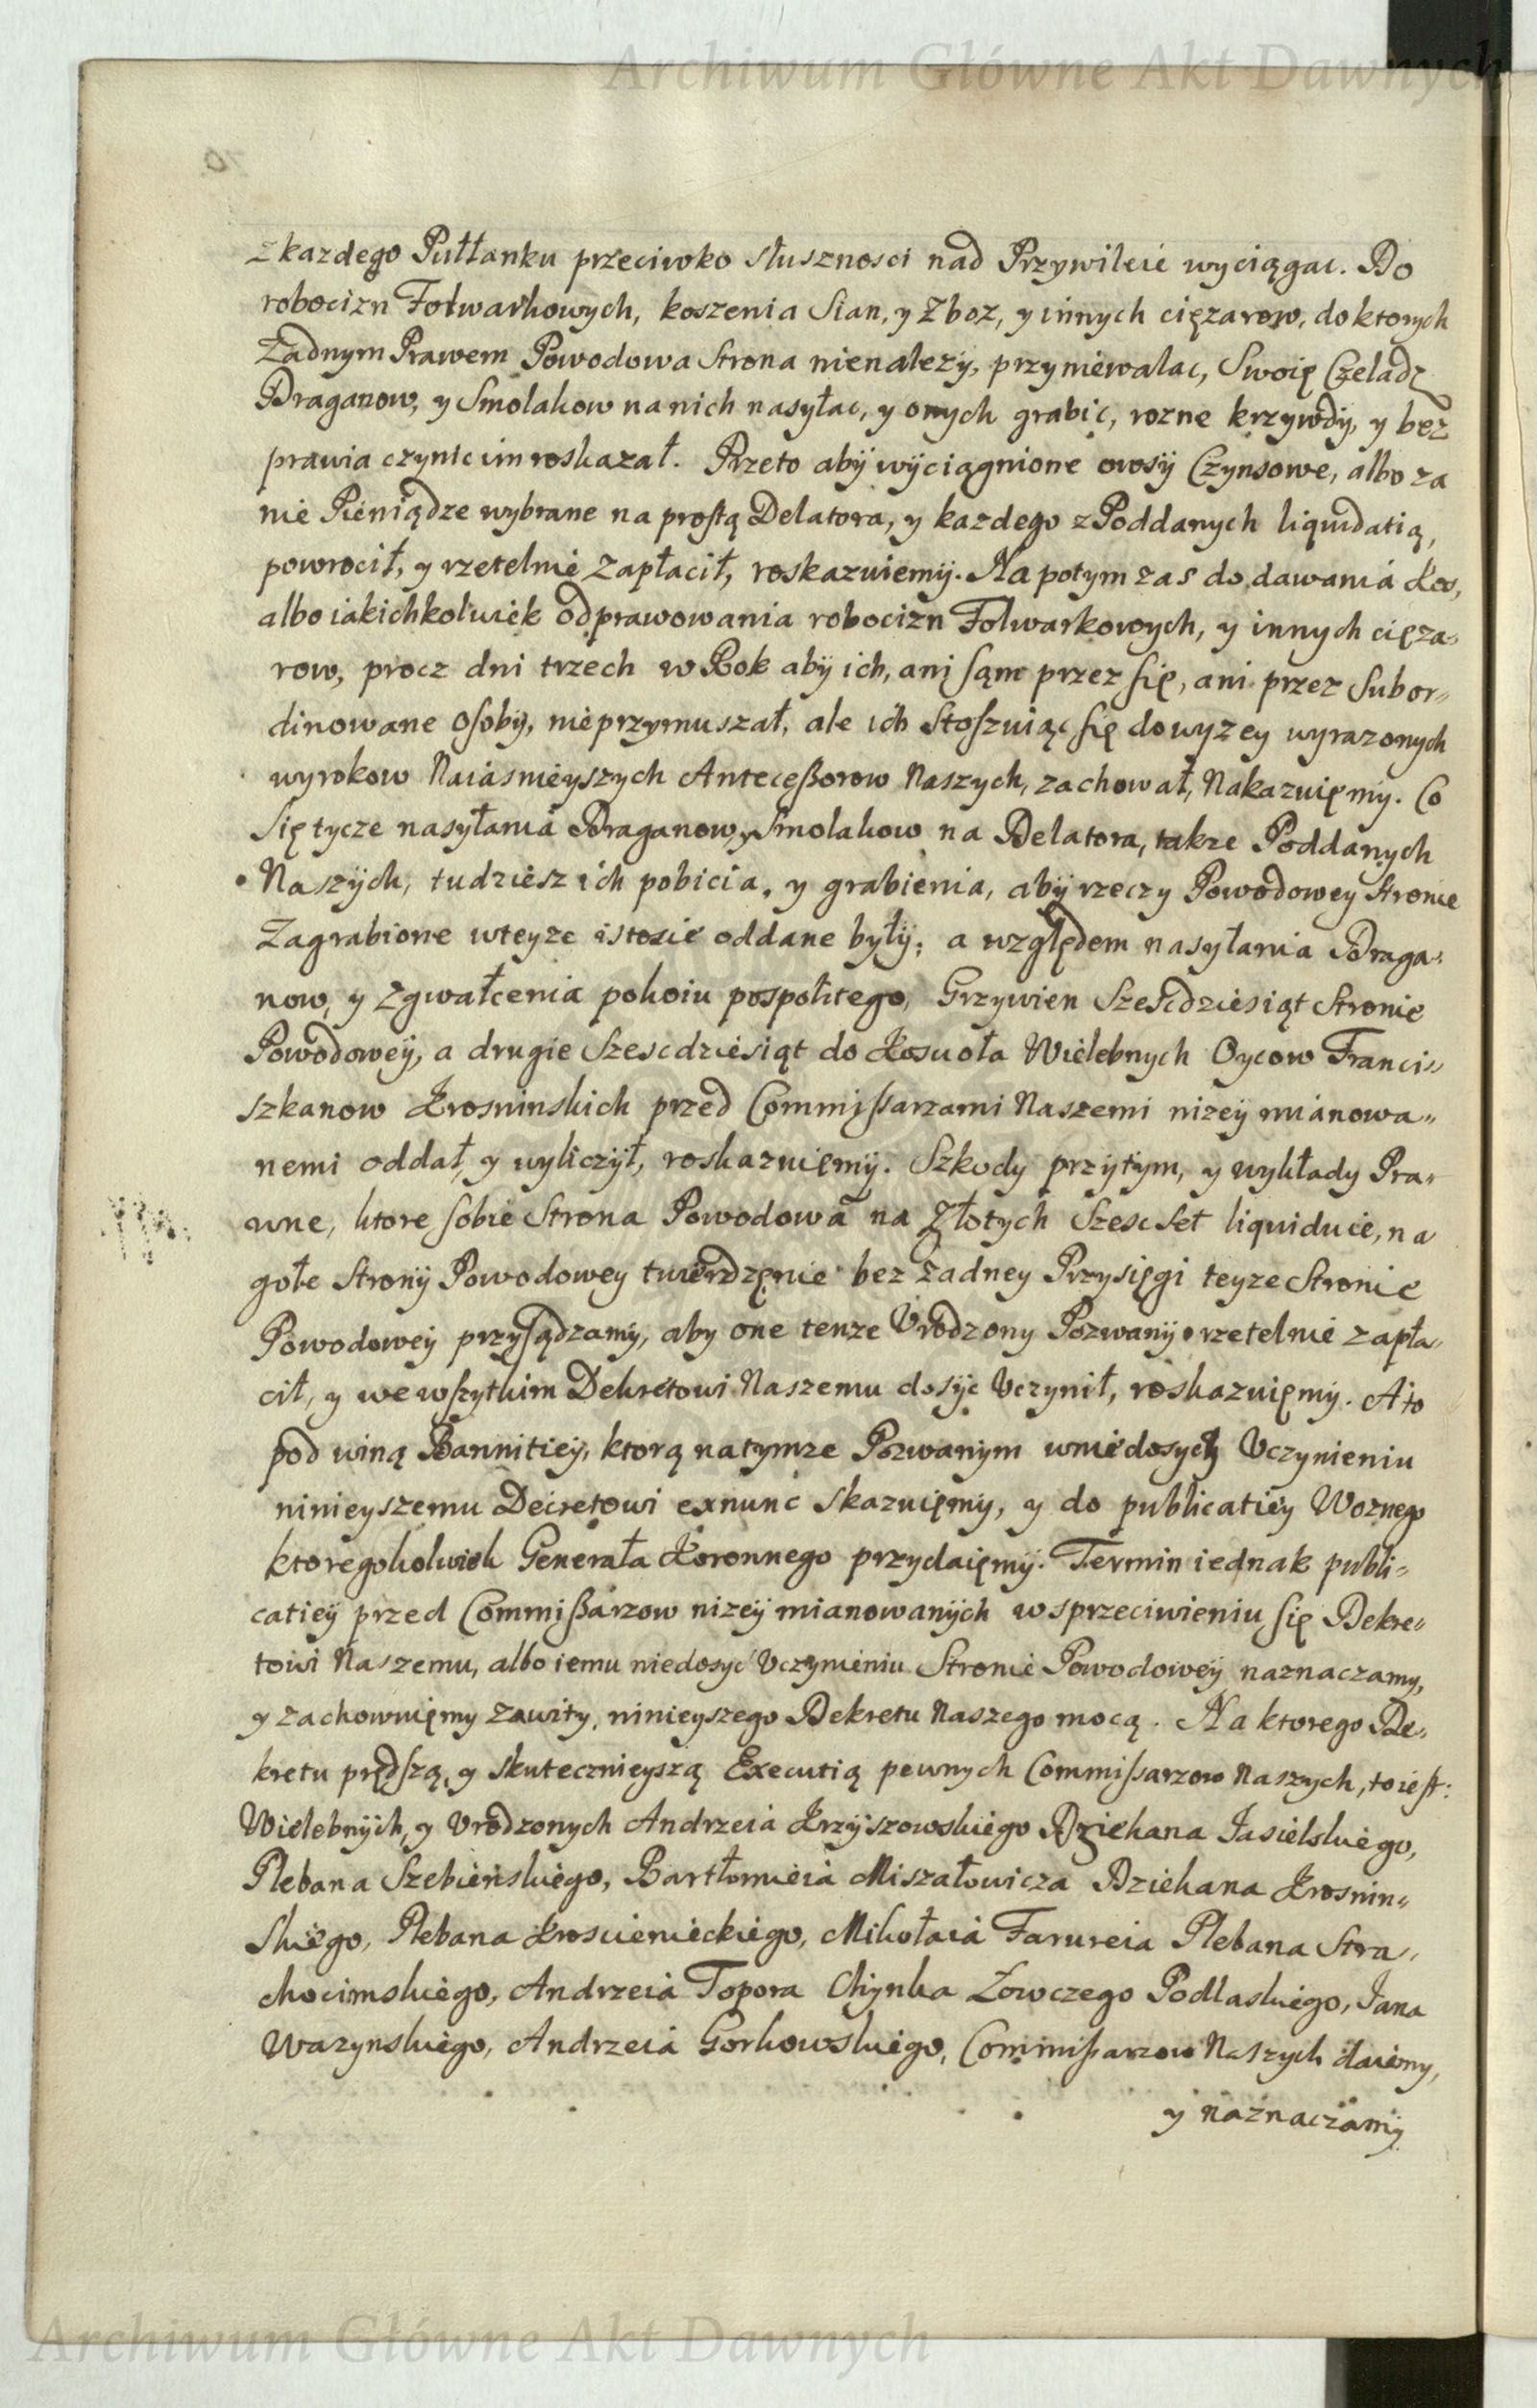 Archiwum Główne Akt Dawnych
z kazdego Pułłanku przeciwko słusznosci nad Przywileie wyciągac. Do
robocizn Folwarkowych, koszenia Sian, y Zboz, y innych cięzarow, do ktorych
Zadnym Prawem Powodowa Strona nienalezy, przyniewalac, Swoię Czeladz
Draganow, y Smolakow na nich nasyłac, y onych grabic, rozne krzywdy, y bez
prawia czynic im roskazał. Przeto aby wyciągnione owsy Czynsowe, albo za
nie Pieniądze wybrane na prostą Delatora, y kazdego z Poddanych liquidatią,
powrocił, y rzetelnie Zapłacił, roskazuiemy. Na potym zas do dawania Kos,
albo iakichkolwiek odprawowania robocizn Folwarkowych, y innych cięza-
row, procz dni trzech w Rok aby ich, ani sąm przez się, ani przez Subor-
dinowane osoby, nie przymuszał, ale ich Stosuiąc się do wyzey wyrazonych
wyrokow Naiasnieyszych Antecessorow Naszych, zachował, Nakazuięmy. Co
Się tycze nasyłania Draganow, y Smolakow na Delatora, takze Poddanych
Naszych, tudziesz ich pobicia, y grabienia, aby rzeczy Powodowey Stronie
Zagrabione wteyze istosie oddane były; a względem nasyłania Draga-
now, y Zgwałcenia pokoiu pospolitego, Grzywien Szescdziesiąt Stronie
Powodowey, a drugie Szescdziesiąt do Koscioła Wielebnych Oycow Franci-
szkanow Krosninskich przed Commissarzami Naszemi nizey mianowa-
nemi oddał, y wyliczył, roskazuięmy. Szkody przytym, y wykłady Pra-
wne, ktore sobie Strona Powodowa na Złotych Szesc Set liquiduie, na
gołe Strony Powodowey twierdzęnie bez zadney Przysięgi teyze Stronie
Powodowey przysądzamy, aby one tenze Vrodzony Pozwany rzetelnie zapła-
cił, y we wszytkim Dekretowi Naszemu dosyc Vczynił, roskazuięmy. A to
pod winą Bannitiey, ktorą na tymze Pozwanym wniedosych Vczynieniu
ninieyszemu Decretowi exnunc skazuięmy, y do publicatiey Woznego
ktoregokolwiek Generała Koronnego przydaięmy. Termin iednak publi-
catiey przed Commissarzow nizey mianowanych wsprzeciwieniu się Dekre-
towi Naszemu, albo iemu niedosyc Vczynieniu Stronie Powodowey naznaczamy,
y zachowuięmy Zawity, ninieyszego Dekretu Naszego mocą. Na ktorego De-
kretu prędszą, y skutecznieyszą Executią pewnych Commissarzow Naszych, to iest:
Wielebnych, y Vrodzonych Andrzeia Krzyszowskiego Dziekana Iasielskiego,
Plebana Szebieńskiego, Bartłomieia Miszałowicza Dziekana Krosnin-
skiego, Plebana Kroscienieckiego, Mikołaia Farureia Plebana Stra-
chocimskiego, Andrzeia Topora Chynka Łowczego Podlaskiego, Iana
Wazynskiego, Andrzeia Gorkowskiego, Commissarzow Naszych daiemy,
y naznaczamy
Archiwum Główne Akt Dawnych